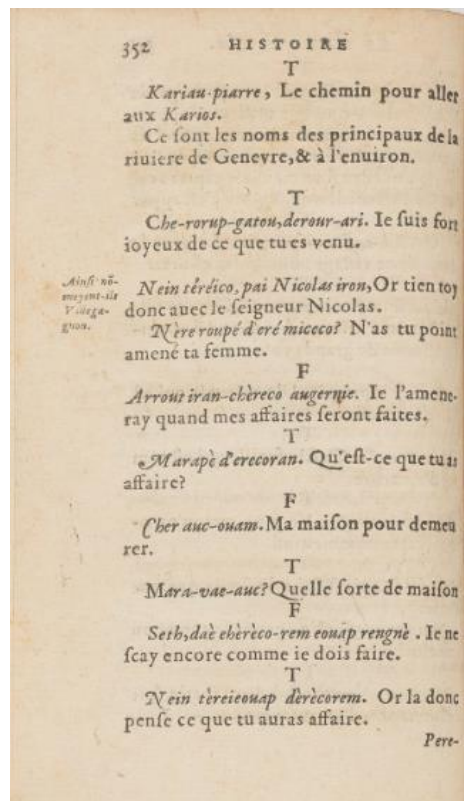 352 HISTOIRE
T
Kariau-piarre, Le chemin pour aller
aux Karios.
Ce ſont les noms des principaux de la
riuiere de Genevre, & à l'enuiron.
T
Che-rorup-gatou, derour-ari. Ie ſuis fort
ioyeux de ce que tu es venu.
Ainſi nõ-
moyent-ils
Villega-
gnon.
Nein téréico, pai Nicolas iron, Or tien toy
donc auec le ſeigneur Nicolas.
Nère roupé d'eré miceco? N'as tu point
amené ta femme.
F
Arrout iran-chèreco augernie. Ie l'amene-
ray quand mes affaires ſeront faites.
T
Marapè d'erecoran. Qu'eſt-ce que tu as
affaire?
F
Cher auc-ouam. Ma maiſon pour demeu
rer.
T
Mara-vae-auc? Quelle ſorte de maiſon
F
Seth, daè ehèrèco-rem eouap rengnè. Ie ne
ſcay encore comme ie dois faire.
T
Nein tèreieouap dèrècorem. Or la donc
penſe ce que tu auras affaire.
Pere-